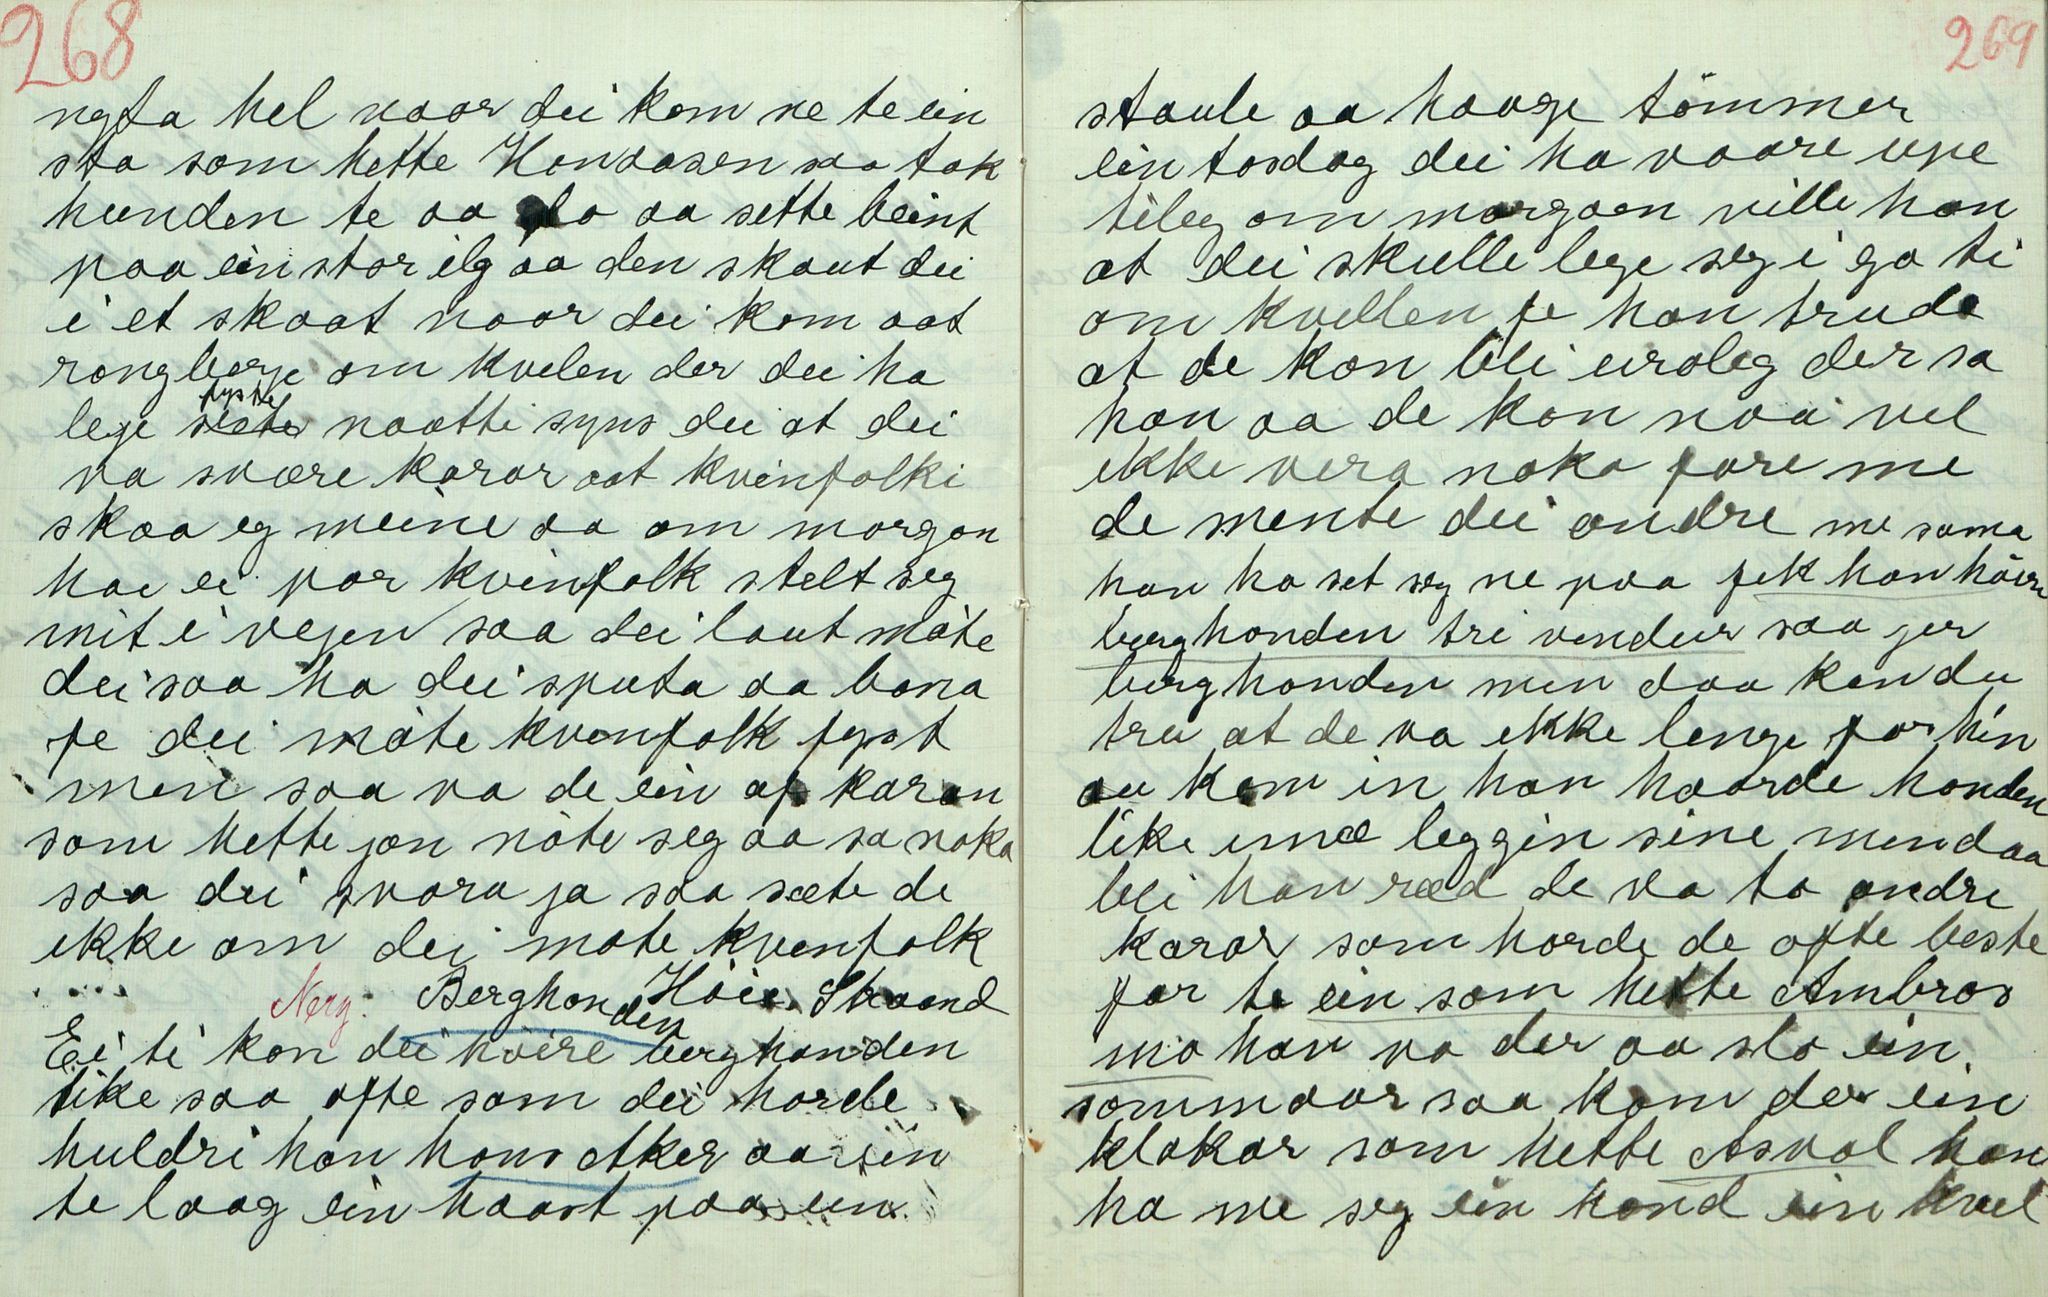 268
nyta hel naar dei kom ne te ein
sta som hette Honaasen saa tok
hunden te aa glo aa sette beint
paa ein stor elg aa den skaut dei
i et skaat naar dei kom aat
rongberje om kvelen der dei ha
lege fyste naatti syns dei at dei
va svære karar aat kvinfolki
skaa eg meine aa om morgon
hae ei par kvinfolk stelt seg
mit i vegen saa dei laut møte
dei saa ha dei sputa aa bana
fe dei møte kvenfolk fyst
men saa va de ein af karan
som hette jon nøte seg aa sa noko
saa dei svara ja saa sæte de
ikke om dei møte kvenfolk
Nerg. Berghonden Höie Straand
Ei ti kon dei höire berghonden
like saa ofte som dei horde
huldri han hans Aker aa ein
te laag ein haast paa ein
269
staule aa hauge tömmer
ein tosdag dei ha vaare upe
tileg om morgoen ville han
at dei skulle lege seg i go ti
om kvellen fe han trude
at de kon bli uroleg der sa
han aa de kon naa vel
ikke vera noko fore me
de mente dei andre me sama
han ha set seg ne paa fek han höire
berghonden tri vendeur saa jer
berghonden men daa kan du
tru at de va ikke lenge for hin
au kom in han haarde honden
like imæ leggin sine men daa
blei han ræd de va to andre
karar som horde de ofte beste
far te ein som hette Ambros
mo han va der aa slo ein
sommaar saa kom der ein
klokar som hette Asval han
ha me seg ein hond ein kvel